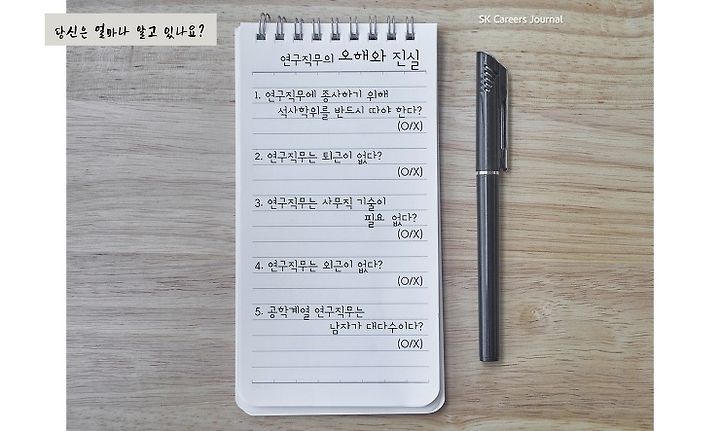 당신은 얼마나 알고 있나요?
SK Careers Journal
연구직무의 오해와 진실
1. 연구직무에 종사하기 위해
석사학위를 반드시 따야 한다?
(O/X)
2. 연구직무는 퇴근이 없다?
(O/X)
3. 연구직무는 사무직 기술이
필요 없다?
(O/X)
4. 연구직무는 외근이 없다?
(O/X)
5. 공학계열 연구직무는
남자가 대다수이다?
(O/X)